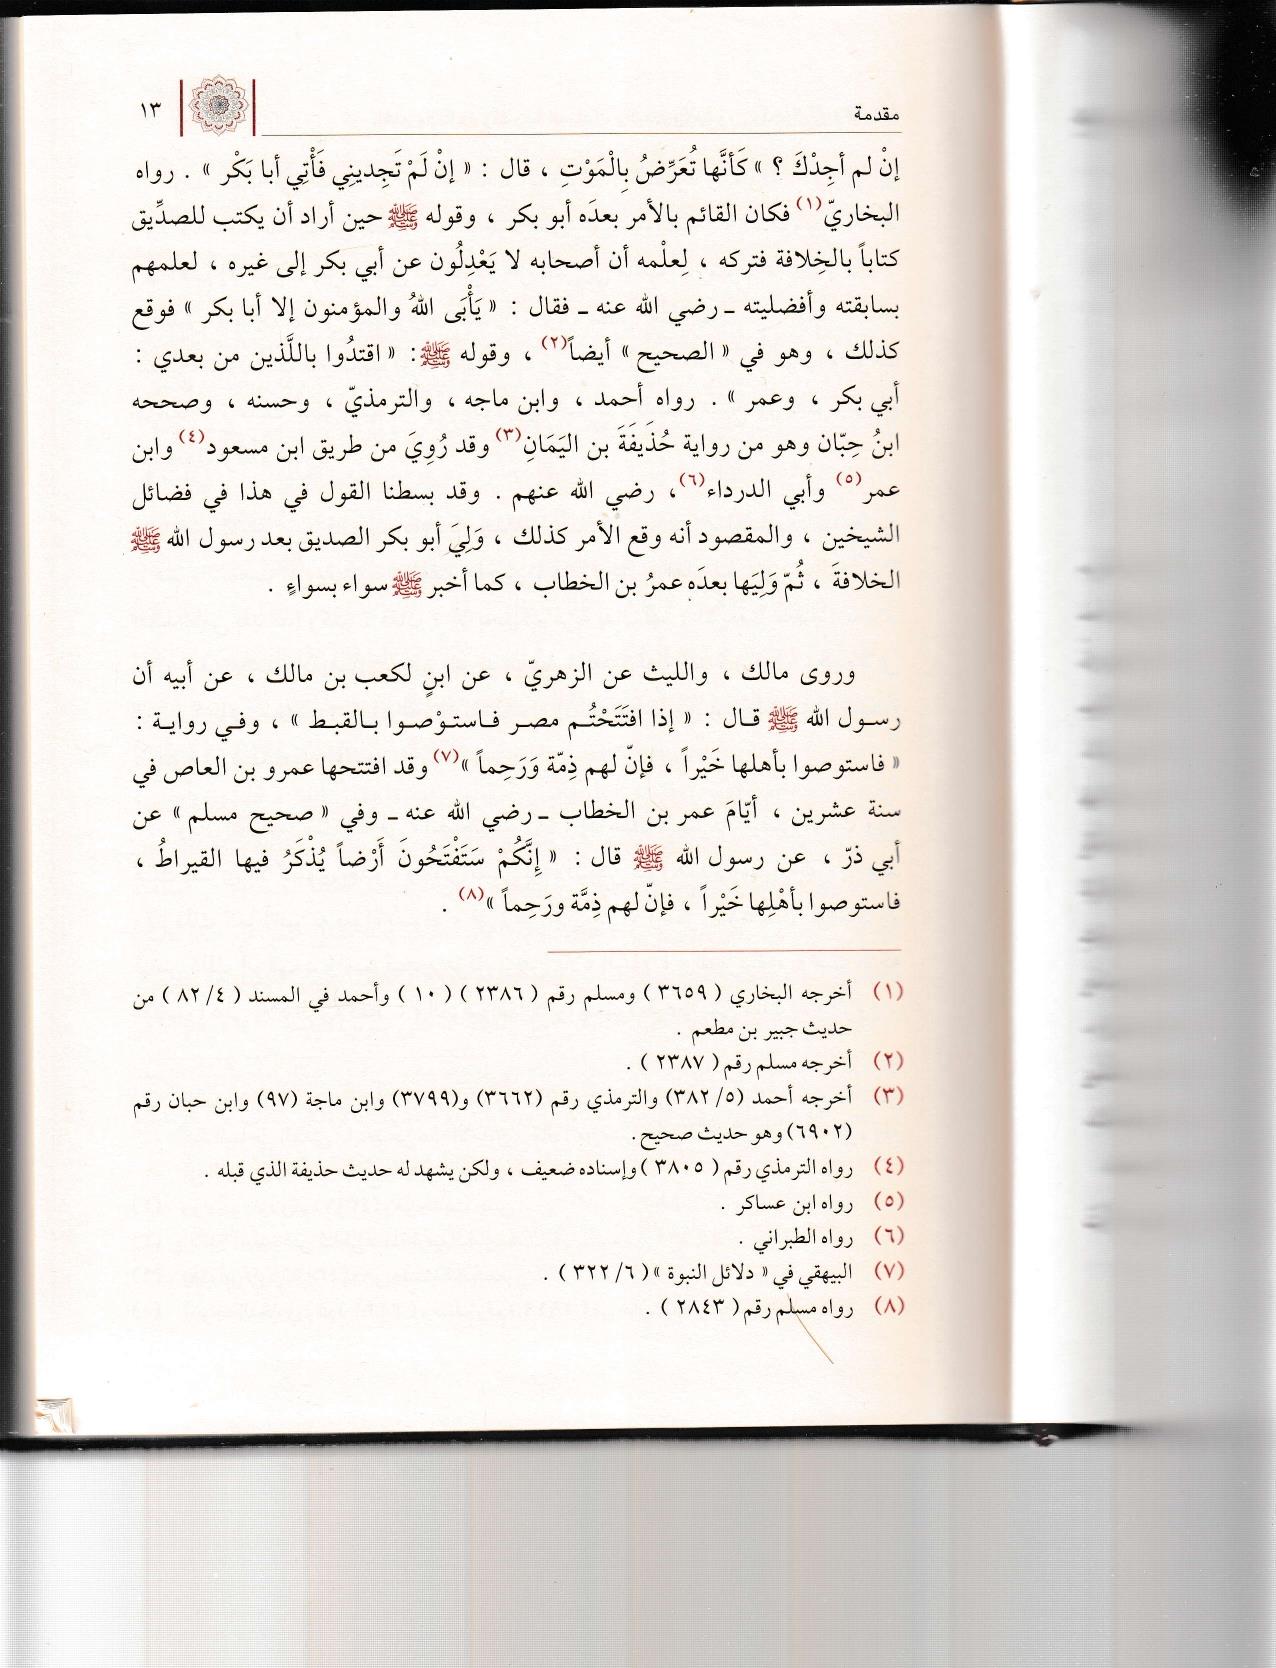 مقدمة
١٣
إنْ لم أجِدْكَ ؟ » كَأنَّها تُعَرِّضُ بِالْمَوْتِ ، قال : « إنْ لَمْ تَجِديني فَأْتِي أبا بَكْر » . رواه
البخاريّ(١) فكان القائم بالأمر بعدَه أبو بكر ، وقوله ﷺ حين أراد أن يكتب للصدِّيق
كتاباً بالخِلافة فتركه ، لِعلْمه أن أصحابه لا يَعْدِلُون عن أبي بكر إلى غيره ، لعلمهم
بسابقته وأفضليته ـ رضي الله عنه ـ فقال : « يَأْبَى اللهُ والمؤمنون إلا أبا بكر » فوقع
كذلك ، وهو في « الصحيح » أيضاً(٢) ، وقوله ﷺ : « اقتدُوا باللَّذين من بعدي :
أبي بكر ، وعمر » . رواه أحمد ، وابن ماجه ، والترمذيّ ، وحسنه ، وصححه
ابنُ حِبّان وهو من رواية حُذَيفَةَ بن اليَمَانِ(٣) وقد رُوِيَ من طريق ابن مسعود(٤) وابن
عمر(٥) وأبي الدرداء(٦)، رضي الله عنهم . وقد بسطنا القول في هذا في فضائل
الشيخين ، والمقصود أنه وقع الأمر كذلك ، وَلِيَ أبو بكر الصديق بعد رسول الله ﷺ
الخلافةَ ، ثُمّ وَلِيَها بعدَه عمرُ بن الخطاب ، كما أخبر ﷺ سواء بسواءٍ .
وروى مالك ، والليث عن الزهريّ ، عن ابنٍ لكعب بن مالك ، عن أبيه أن
رسول الله ﷺ قال : « إذا افتَتَحْتُم مصر فاستوْصوا بالقبط » ، وفي رواية :
« فاستوصوا بأهلها خَيْراً ، فإنّ لهم ذِمّة وَرَحِماً »(٧) وقد افتتحها عمرو بن العاص في
سنة عشرين ، أيّامَ عمر بن الخطاب ـ رضي الله عنه ـ وفي « صحيح مسلم » عن
أبي ذرّ ، عن رسول الله ﷺ قال : « إِنَّكُمْ سَتَفْتَحُونَ أَرْضاً يُذْكَرُ فيها القيراطُ ،
فاستوصوا بأهْلِها خَيْراً ، فإنّ لهم ذِمَّة ورَحِماً »(٨) .
(١) أخرجه البخاري ( ٣٦٥٩ ) ومسلم رقم ( ٢٣٨٦ ) ( ١٠ ) وأحمد في المسند ( ٤/ ٨٢ ) من
حديث جبير بن مطعم .
(٢) أخرجه مسلم رقم ( ٢٣٨٧ ) .
(٣) أخرجه أحمد (٥/ ٣٨٢) والترمذي رقم (٣٦٦٢) و(٣٧٩٩) وابن ماجة (٩٧) وابن حبان رقم
(٦٩٠٢) وهو حديث صحيح.
(٤) رواه الترمذي رقم ( ٣٨٠٥ ) وإسناده ضعيف ، ولكن يشهد له حديث حذيفة الذي قبله .
(٥) رواه ابن عساكر .
(٦) رواه الطبراني .
(٧) البيهقي في « دلائل النبوة » ( ٦/ ٣٢٢ ) .
(٨) رواه مسلم رقم ( ٢٨٤٣ ) .